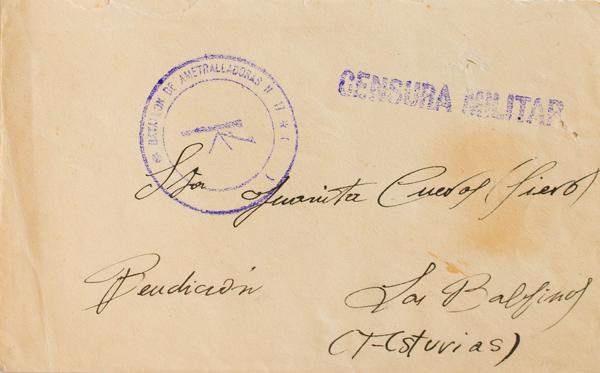 * BATALLON DE AMETRALLADORAS N 17 * ( )
CENSURA MILITAR
Sta Juanita Cuevas (Siero)
Rendición
Los
(Asturias)